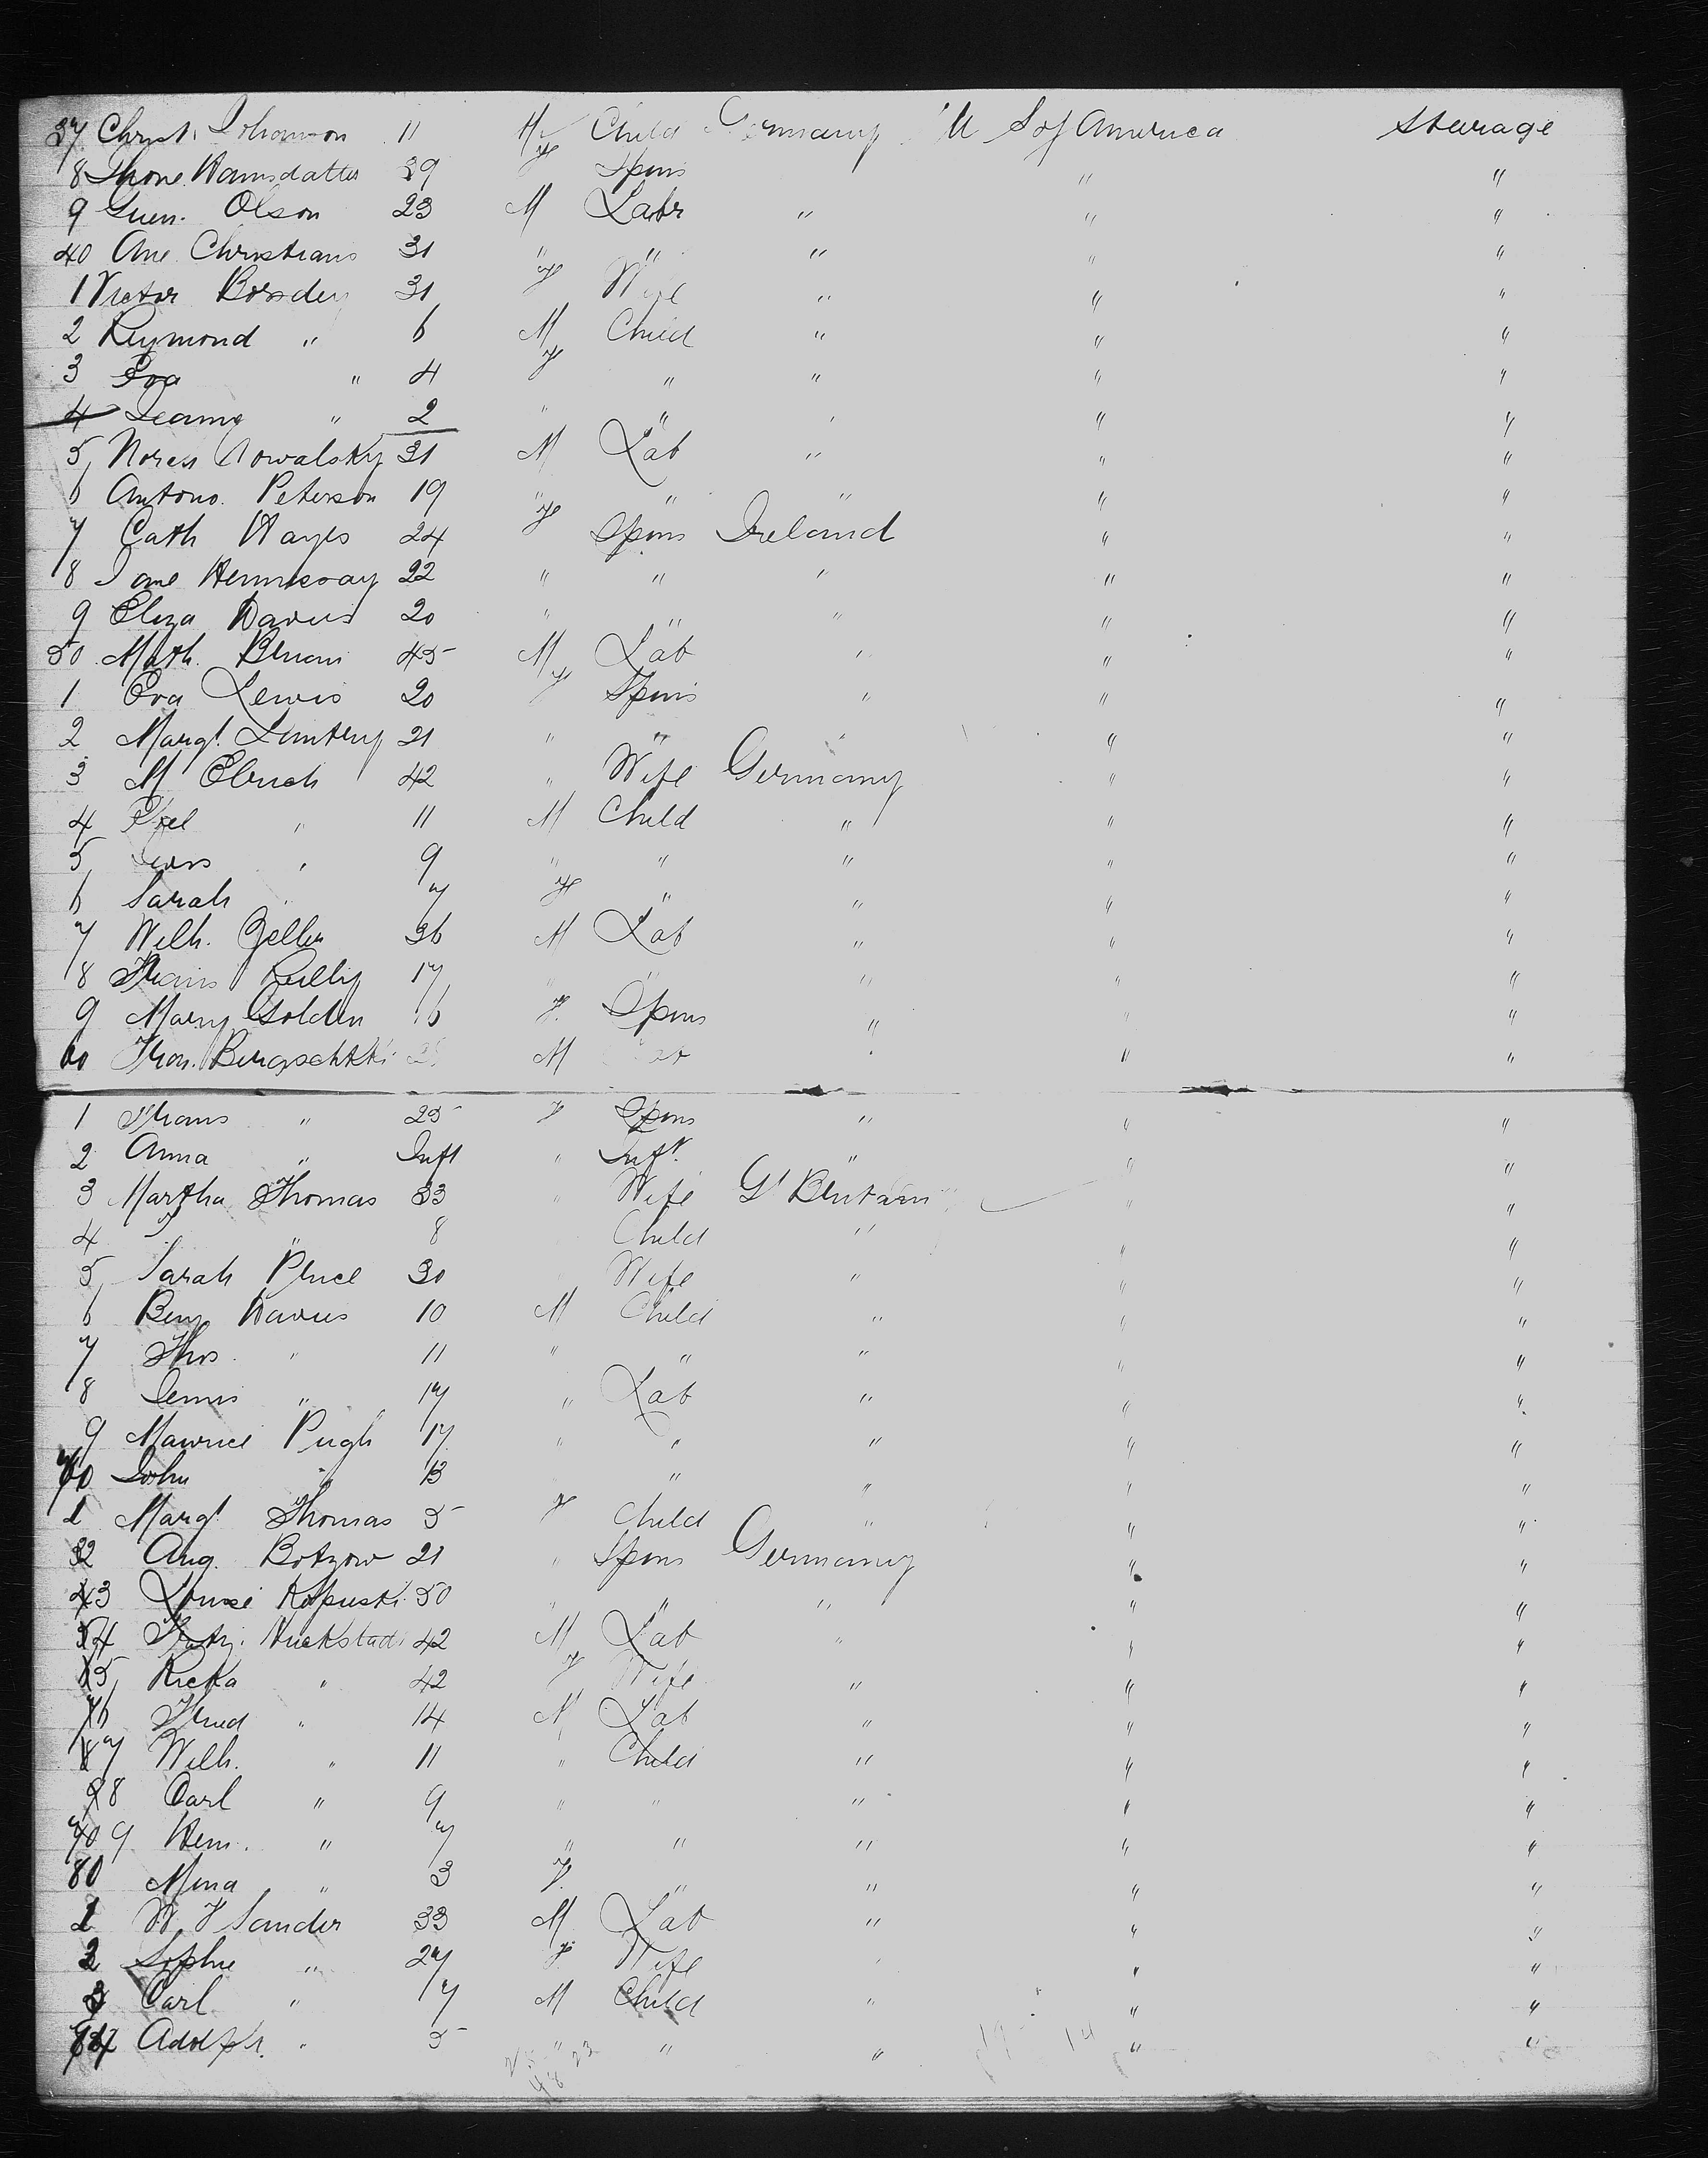 37 Christ. Johanson 11 M Child Germany U S of America Sterage
8 Thone Hansdatter 39 F Spins " "
9 Olson 23 M Labr " " "
40 Ane Christians 31 " " " " "
1 Victor 31 F Wife " " "
2 Reymond " 6 M Child " " "
3 Eva " 4 F " " " "
4 " 2 " " " " "
5 31 M Lab " " "
6 Antono. Peterson 19 " " " " "
7 Cath Hayes 24 F Spins Ireland " "
8 Jane 22 " " " " "
9 Eliza Davies 20 " " " " "
50 Math. 45 M Lab " " "
1 Eva Lewis 20 F Spins " " "
2 Margt. 21 " " " " "
3 M 42 " Wife Germany " "
4 " 11 M Child " " "
5 " 9 " " " " "
6 Sarah " 7 F " " " "
7 Wilh. Zeller 36 M Lab " " "
8 17 " " " " "
9 Mary Golden 16 F. Spins " " "
60 M Lab " " "
1 " 25 F Spins " " "
2 Anna " Inft " Inft. " " "
3 Martha Thomas 33 " Wife Gt Britain " "
4 " 8 Child " " "
5 Sarah Price 30 " Wife " " "
6 Benj Davies 10 M Child " " "
7 Thos. " 11 " " " " "
8 " 17 " Lab " " "
9 Maurice Pugh 17 " " " " "
70 John " 13 " " " "
1 Margt Thomas 5 F Child " " "
2 Aug. Botzow 21 " Spins Germany " "
3 Louise Kapuski 50 " " " " "
4 42 M Lab " " "
5 Ricka " 42 F Wife " " "
6 Fried " 14 M Lab " " "
7 Wilh. " 11 " Child " " "
8 Carl " 9 " " " " "
9 Hein. " 7 " " " " "
80 Mina " 3 F. " " " "
1 W. F Sander 33 M Lab " " "
2 Sophie " 27 F Wife " " "
3 Carl " 7 M Child " " "
4 Adolph. " 5 " " " " "